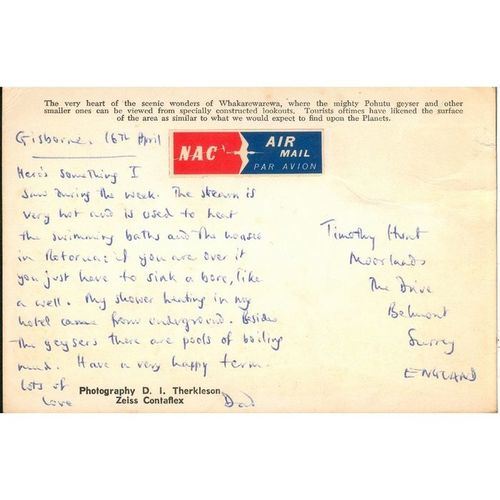 The very heart of the scenic wonders of Whakarewarewa, where the mighty Pohutu geyser and other
smaller ones can be viewed from specially constructed lookouts. Tourists oftimes have likened the surface
of the area as similar to what we would expect to find upon the Planets.
Gisborne, 16th April
NAC
AIR
MAIL
PAR AVION
Here's something I
saw during the week. The steam is
very hot and is used to heat
the swimming baths and the houses
in Rotorua: if you are over it
you just have to sink a bore, like
a well. My shower heating in my
hotel came from underground. Besides
the geysers there are pools of boiling
mud. Have a very happy term.
Lots of
love
Dad
Timothy Hunt
Moorlands
The Drive
Belmont
Surrey
ENGLAND
Photography D. I. Therkleson
Zeiss Contaflex